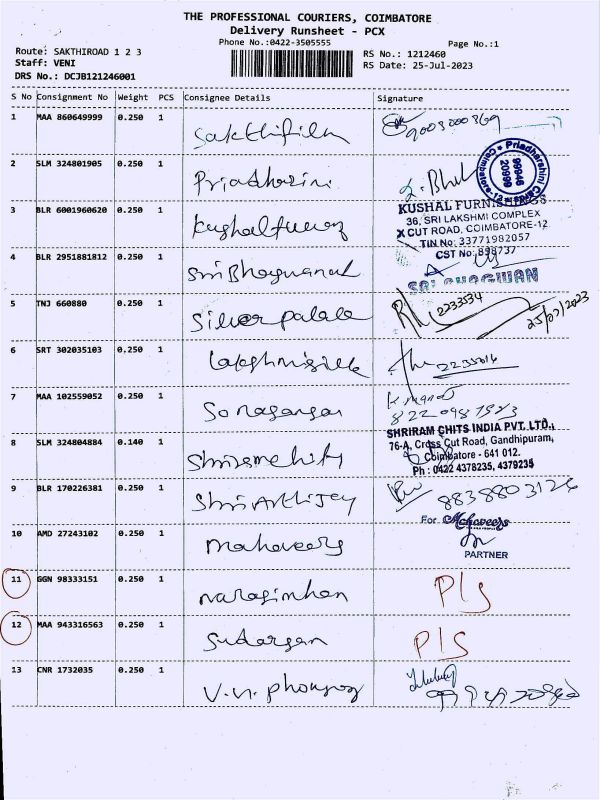 THE PROFESSIONAL COURIERS, COIMBATORE
Delivery Runsheet - PCX
Phone No.:0422-3505555
Page No.:1
Route: SAKTHIROAD 1 2 3
RS No.: 1212460
Staff: VENI
RS Date: 25-Jul-2023
DRS No.: DCJB121246001
S No Consignment No Weight PCS Consignee Details Signature
1 MAA 860649999 0.250 1 Sakthifilm
2 SLM 324801905 0.250 1
Priadharshini Cars
Coimbatore-12
99946
20999
3 BLR 6001960620 0.250 1
KUSHAL FURNISHINGS
36, SRI LAKSHMI COMPLEX
X CUT ROAD, COIMBATORE-12
TIN No: 33771982057
CST No: 898737
4 BLR 2951881812 0.250 1 Sri Bhagwanah
SRI BHAGWAN
5 TNJ 660880 0.250 1 Silver palace 2233534
25/07/2023
6 SRT 302035103 0.250 1 Lakshmisilk
7 MAA 102559052 0.250 1
8 SLM 324804884 0.140 1
SHRIRAM CHITS INDIA PVT. LTD.,
76-A, Cross Cut Road, Gandhipuram,
Coimbatore - 641 012.
Ph : 0422 4378235, 4379235
9 BLR 170226381 0.250 1 8838803126
10 AMD 27243102 0.250 1 Mahaveers
For Mahaveers
PARTNER
11 GGN 98333151 0.250 1 Narasimhan P/S
12 MAA 943316563 0.250 1 Sudarsan P/S
13 CNR 1732035 0.250 1